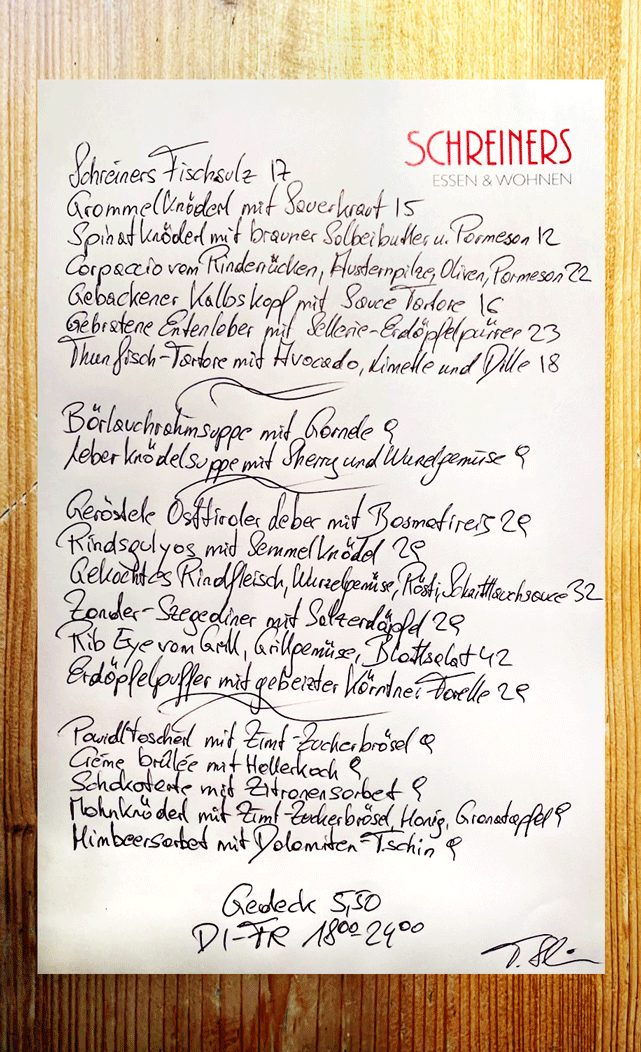 SCHREINERS
ESSEN & WOHNEN
Schreiners Fischsulz 17
Grammelknöderl mit Sauerkraut 15
Spinatknöderl mit brauner Salbeibutter u. Parmesan 12
Carpaccio vom Rinderrücken, Austernpilze, Oliven, Parmesan 22
Gebackener Kalbskopf mit Sauce Tartare 16
Gebratene Entenleber mit Sellerie-Erdöpfelpürree 23
Thunfisch-Tartare mit Avocado, Limette und Dille 18
Bärlauchrahmsuppe mit Garnele 9
Leberknödelsuppe mit Sherry und Wurzelgemüse 9
Geröstete Osttiroler Leber mit Basmatireis 29
Rindsgulyas mit Semmelknödel 29
Gekochtes Rindfleisch, Wurzelgemüse, Rösti, Schnittlauchsauce 32
Zander-Szegediner mit Salzerdäpfel 29
Rib Eye vom Grill, Grillgemüse, Blattsalat 42
Erdöpfelpuffer mit gebeizter Kärntner Forelle 29
Powidltascherl mit Zimt-Zuckerbrösel 9
Crème brûlée mit Hollerkoch 9
Schokotarte mit Zitronensorbet 9
Mohnknöderl mit Zimt-Zuckerbrösel, Honig, Granatapfel 9
Himbeersorbet mit Dolomiten-Tschin 9
Gedeck 5,50
DI-FR 1800-2400